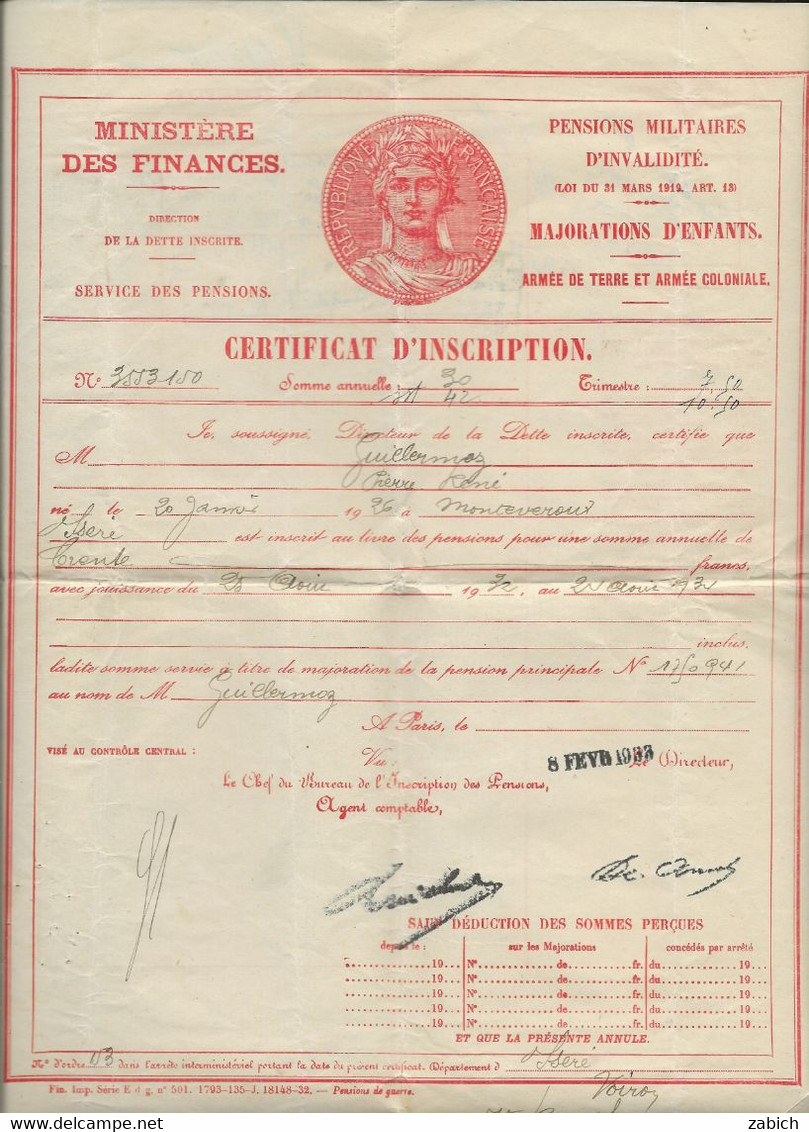 MINISTÈRE
DES FINANCES.
DIRECTION
DE LA DETTE INSCRITE.
SERVICE DES PENSIONS.
REPVBLIQVE FRANÇAISE
PENSIONS MILITAIRES
D'INVALIDITÉ.
(LOI DU 31 MARS 1919. ART. 13)
MAJORATIONS D'ENFANTS.
ARMÉE DE TERRE ET ARMÉE COLONIALE.
CERTIFICAT D'INSCRIPTION.
N° 3553150 Somme annuelle : 30 Trimestre : 7,50
42 10.50
Je, soussigné, Directeur de la Dette inscrite, certifie que
M Guillermoz
Pierre René
né le 20 Janvier 1926 à
Isère est inscrit au livre des pensions pour une somme annuelle de
Trente francs,
avec jouissance du Août 1932, au Août
inclus,
ladite somme servie à titre de majoration de la pension principale N° 1750941
au nom de M Guillermoz
A Paris, le
8 FEVR 1933
VISÉ AU CONTRÔLE CENTRAL :
Vu : Le Directeur,
Le Chef du Bureau de l'Inscription des Pensions,
Agent comptable,
SAUF DÉDUCTION DES SOMMES PERÇUES
depuis le : sur les Majorations concédés par arrêté
19 N° de fr. du 19
19 N° de fr. du 19
19 N° de fr. du 19
19 N° de fr. du 19
19 N° de fr. du 19
ET QUE LA PRÉSENTE ANNULE.
N° d'ordre 03 dans l'arrêté interministériel portant la date du présent certificat. Département d Isère
Fin. Imp. Série E d g. n° 501. 1793-135-J. 18148-32. — Pensions de guerre.
Voiron
zabich